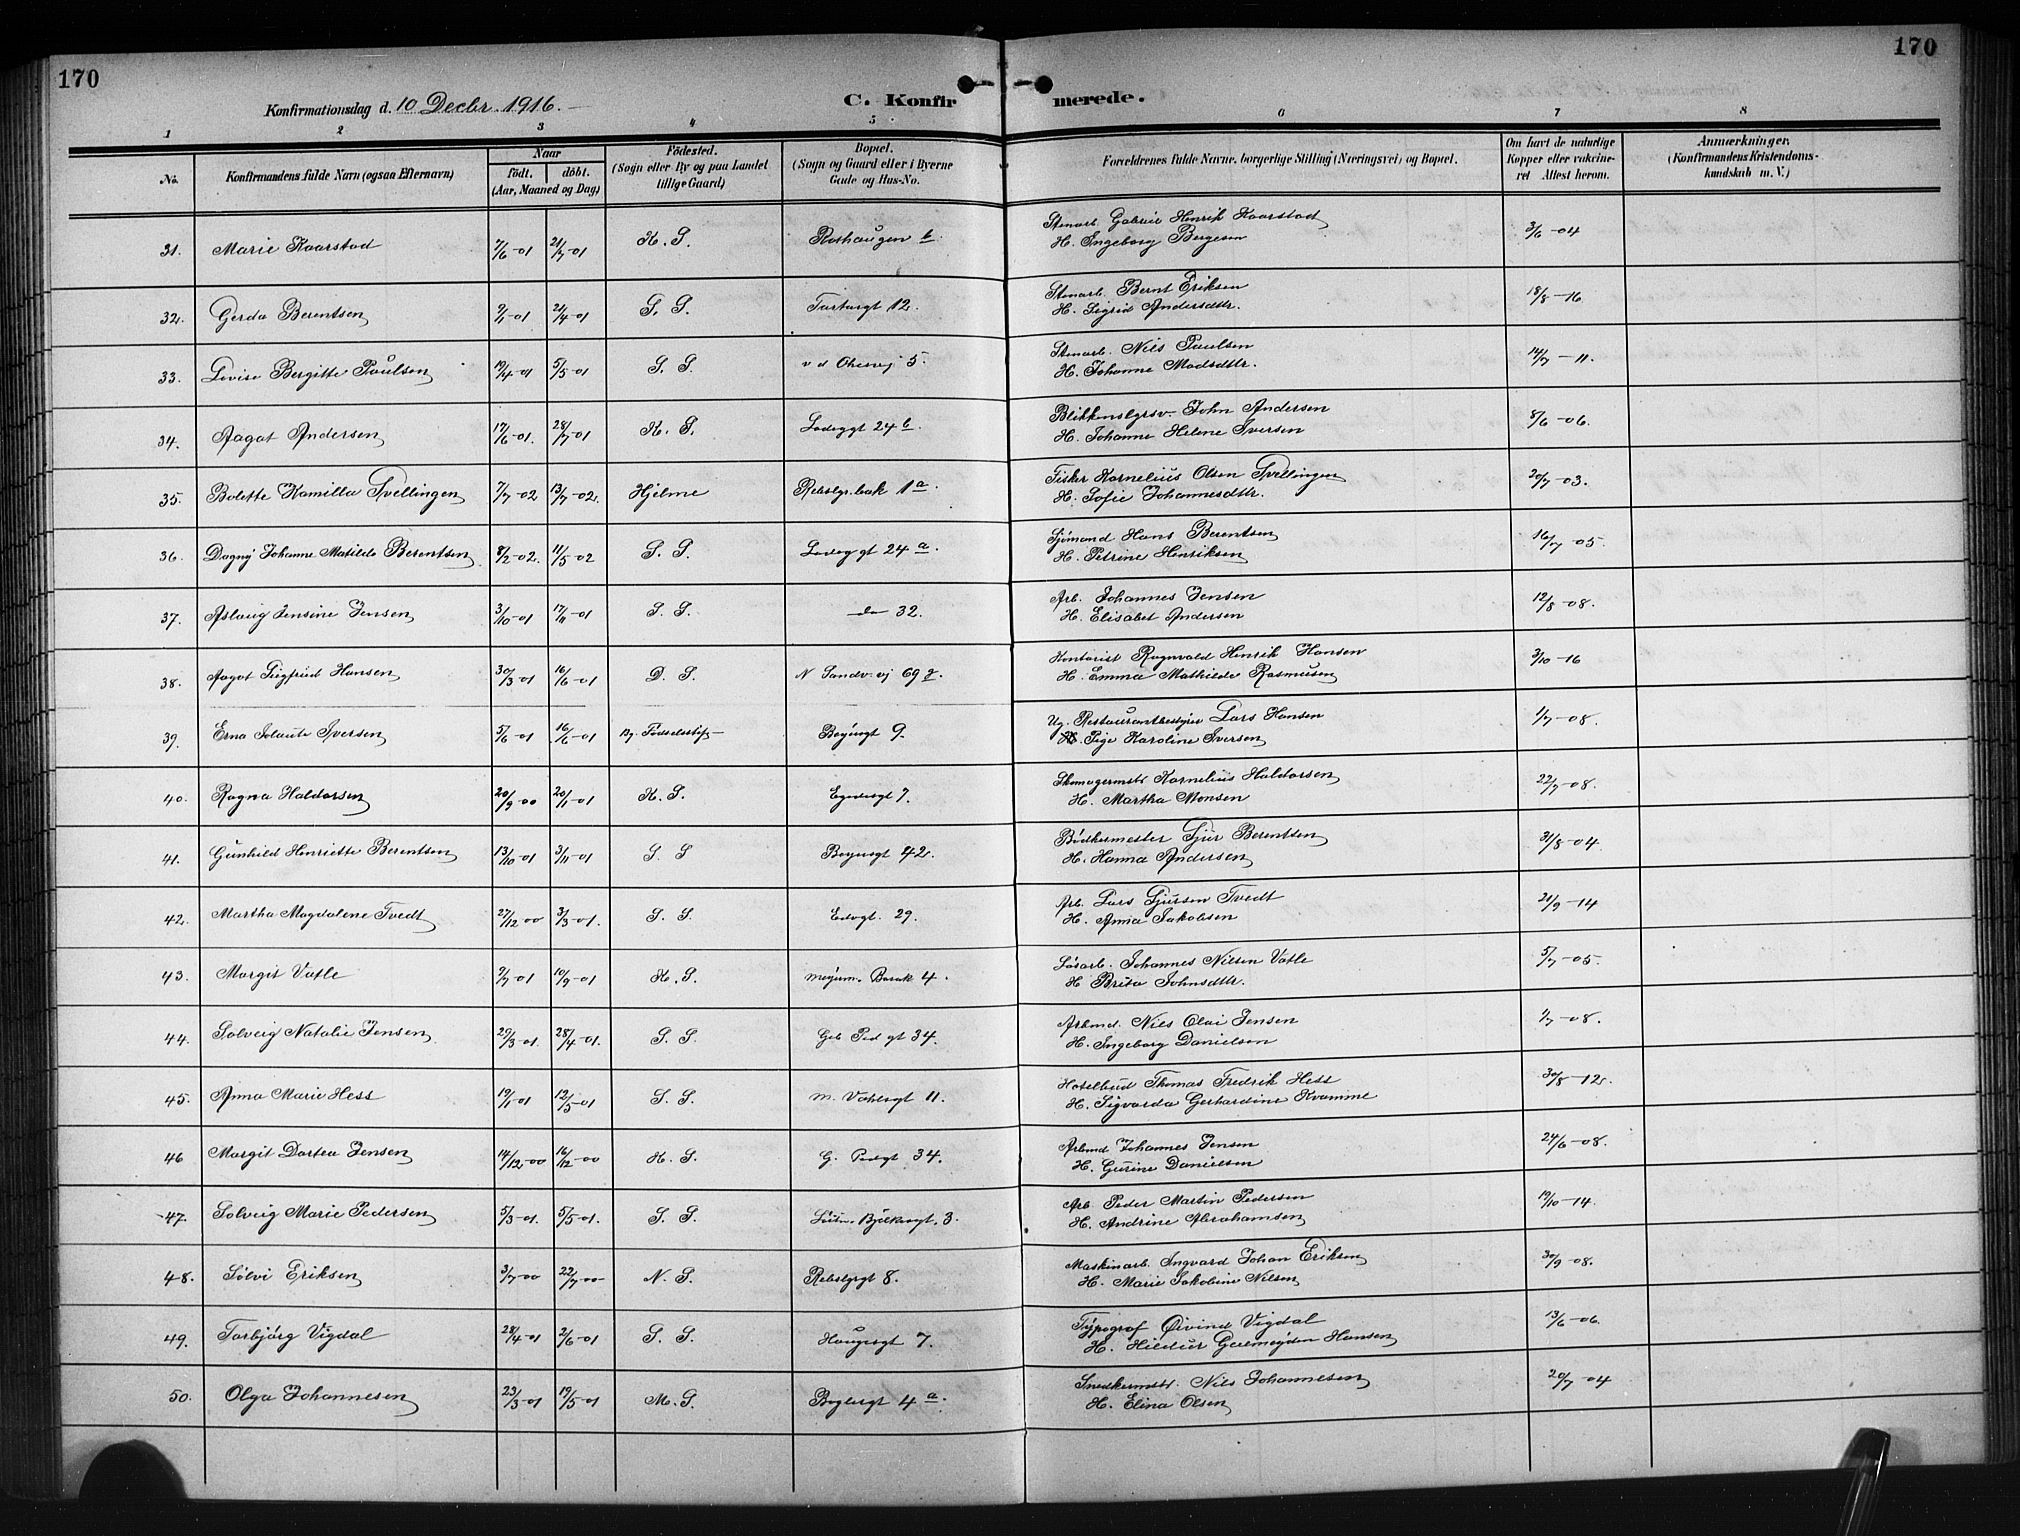 170
170
Konfirmationsdag d. 10 Decbr. 1916.
C. Konfirmerede.
1 2 3 4 5 6 7 8
No. Konfirmandens fulde Navn (ogsaa Efternavn) Naar født. døbt. (Aar, Maaned og Dag) Fødested. (Sogn eller By og paa Landet tillige Gaard) Bopæl. (Sogn og Gaard eller i Byerne Gade og Hus-No. Forældrenes fulde Navne, borgerlige Stilling (Næringsvei) og Bopæl. Om havt de naturlige Kopper eller vaksineret Attest herom. Anmærkninger. (Konfirmandens Kristendomskundskab m. V.)
31. Marie Kaarstad 7/6-01 21/7-01 K. S. Rothaugen b Stenarb. Gabriel Henrik Kaarstad 3/6-04
H. Ingeborg Bergesen
32. Gerda Berentsen 9/1-01 21/4-01 S. S. Tartargt 12. Stenarb. Bernt Eriksen 18/8-16.
H. Sigrid Andersdtr.
33. Lovise Bergitte Paulsen 19/4-01 5/5-01 S. S. 5 Stenarb. Nils Paulsen 14/7-11.
H. Johanne Madsdtr.
34. Aagot Andersen 17/6-01. 28/7-01 K. S. Ladeggt 24 b. Blikkenslgrsv. John Andersen 8/6-06.
H. Johanne Helene Iversen
35. Bolette Kamilla Tvellingen 7/7-02 13/7-02. Hjelme Rebslgr.bak 1 a. Fisker Kornelius Olsen Tvellingen 20/7-03.
H. Sofie Johannesdtr.
36. Dagny Johanne Matilde Berentsen 8/2-02. 11/5-02 S. S. Ladeggt 24 a. Sjømand Hans Berentsen 16/7-05.
H. Petrine Henriksen
37. Aslaug Jensine Jensen 3/10-01 17/11-01 S. S. do 32. Arb. Johannes Jensen 12/8-08.
H. Elisabet Andersen
38. Aagot Sigfrid Hansen 30/3-01 16/6-01 D. S. N Sandv.vj 69 g. Kontorist Ragnvald Henrik Hansen 3/10-16
H. Emma Mathilde Rasmusen
39. Erna Iversen 5/6-01 16/6-01 By. Fødselsstif Bøyersgt 9. Ug. Restaurantbestyrer Lars Hansen 1/7-08.
Pige Karoline Iversen
40. Ragna Haldorsen 20/9-00 20/1-01 K. S. Egedesgt 7. Skomagermstr Kornelius Haldorsen 22/7-08.
H. Martha Monsen
41. Gunhild Henriette Berentsen 13/10-01 3/11-01 S. S Bøyersgt 42. Bødkermester Sjur Berentsen 31/8-04.
H. Hanna Andersen
42. Martha Magdalene Tvedt 27/12-00 3/3-01. S. S. Edvgt. 29. Arb. Lars Sjursen Tvedt 21/9-14
H. Anna Jakobsen
43. Margit Vatle 9/7-01 10/9-01 K. S. Barak 4. Løsarb. Johannes Nilsen Vatle 5/7-05.
H Brita Johnsdtr.
44. Solveig Natalie Jensen 29/3-01. 28/4-01. S. S. Geb Ped gt 34. Arbmd. Nils Olai Jensen 1/7-08.
H. Ingeborg Danielsen
45. Anna Marie Hess 19/1-01 12/5-01 S. S. m. Vahlsgt 11. Hotelbud Thomas Fredrik Hess 30/8-12.
H. Sigvarda Gerhardine Kvamme
46 Margit Dortea Jensen 14/12-00 16/12-00 K. S. G. Pedsgt 34. Arbmd Johannes Jensen 24/6-08.
H. Gurine Danielsen
47. Solveig Marie Pedersen 5/3-01. 5/5-01. S. S. Bjelkesgt. 3. Arb. Peder Martin Pedersen 19/10-14.
H. Andrine Abrahamsen
48. Sølvi Eriksen 3/7-00 22/7-00 N. S. Rebslgrgt 8. Maskinarb. Ingvard Johan Eriksen 30/9-08.
H. Marie Jakobine Nilsen
49. Torbjørg Vigdal 28/4-01 2/6-01 S. S. Haugesgt 7. Typograf Øivind Vigdal 13/6-06.
H. Hildur Hansen
50. Olga Johannesen 23/3-01 19/5-01 M. S. Boglergt 4 a. Snedkermstr. Nils Johannesen 20/7-04
H. Elina Olsen